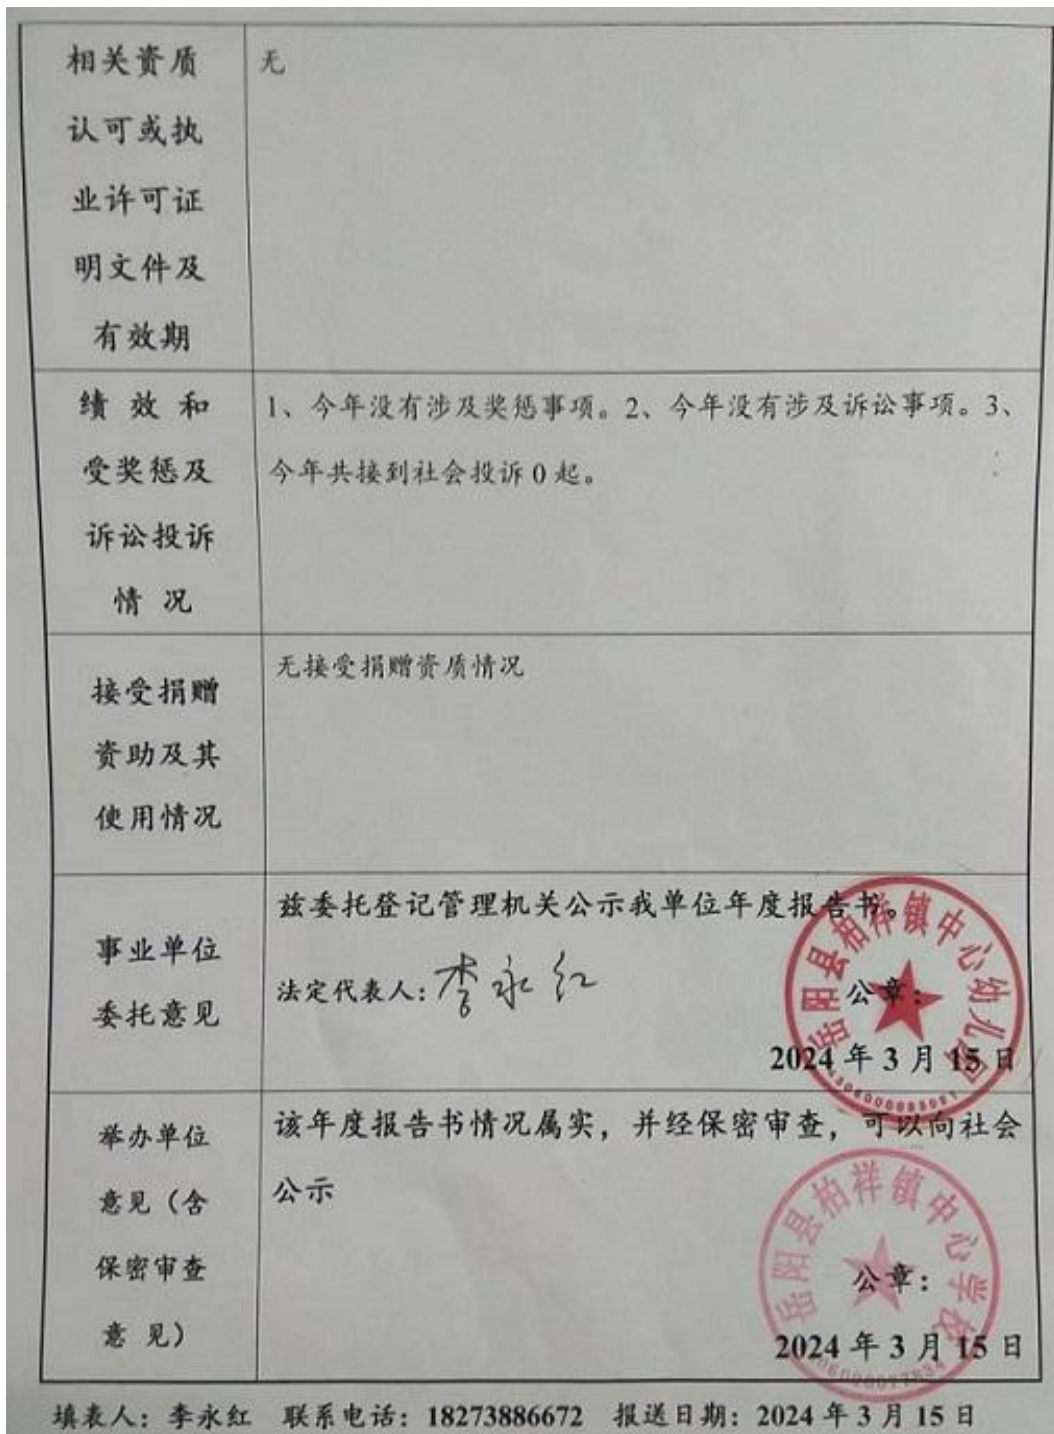 相关资质
认可或执
业许可证
明文件及
有效期
无
绩 效 和
受奖惩及
诉讼投诉
情 况
1、今年没有涉及奖惩事项。2、今年没有涉及诉讼事项。3、
今年共接到社会投诉 0 起。
接受捐赠
资助及其
使用情况
无接受捐赠资质情况
事业单位
委托意见
兹委托登记管理机关公示我单位年度报告书。
法定代表人：李永红
公章：
2024 年 3 月 15 日
岳阳县柏祥镇中心幼儿园
举办单位
意见（含
保密审查
意 见）
该年度报告书情况属实，并经保密审查，可以向社会
公示
公章：
2024 年 3 月 15 日
岳阳县柏祥镇中心学校
填表人：李永红 联系电话：18273886672 报送日期：2024 年 3 月 15 日